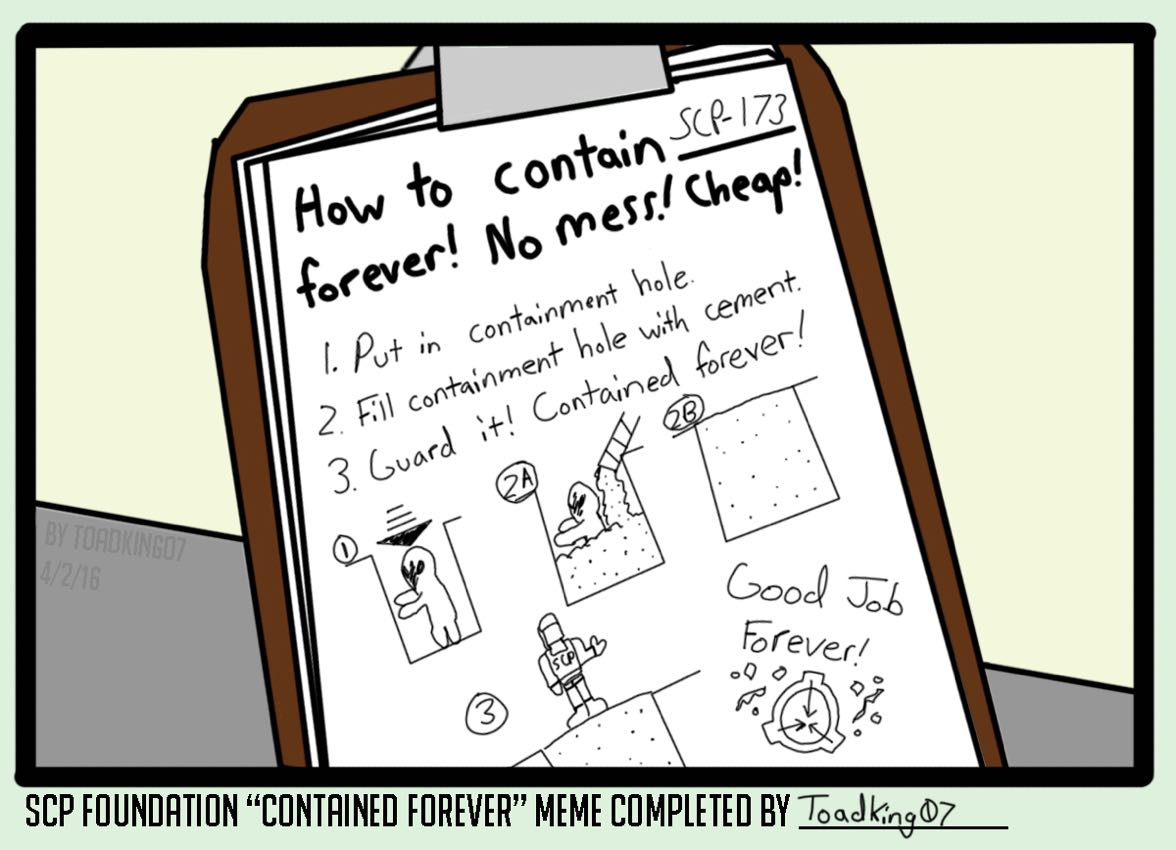 How to contain SCP-173
forever! No mess! Cheap!
1. Put in containment hole.
2. Fill containment hole with cement.
3. Guard it! Contained forever!
1
2A
2B
3
SCP
Good Job
Forever!
BY TOADKING07
4/2/16
SCP FOUNDATION “CONTAINED FOREVER” MEME COMPLETED BY Toadking07